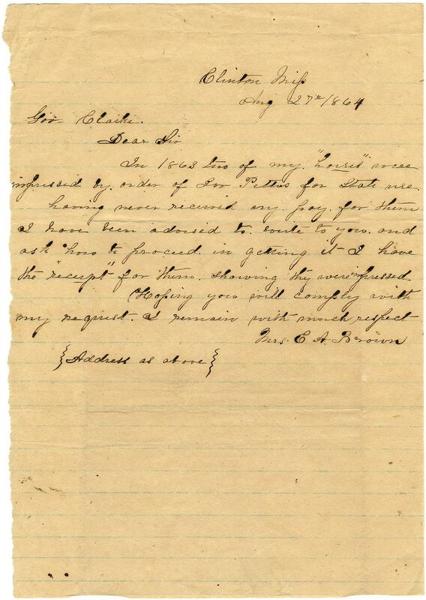 Clinton Miss
Aug 27th 1864
Gov Clarke.
Dear Sir
In 1863 two of my "horses" were
impressed by order of Gov Pettus for State use.
having never received any pay for them
I have been advised to write to you and
ask "how to proceed in getting it I have
the "receipt" for them. showing they were pressed.
Hoping you will comply with
my request. I remain with much respect
Mrs. E A. Brown
{Address as above}